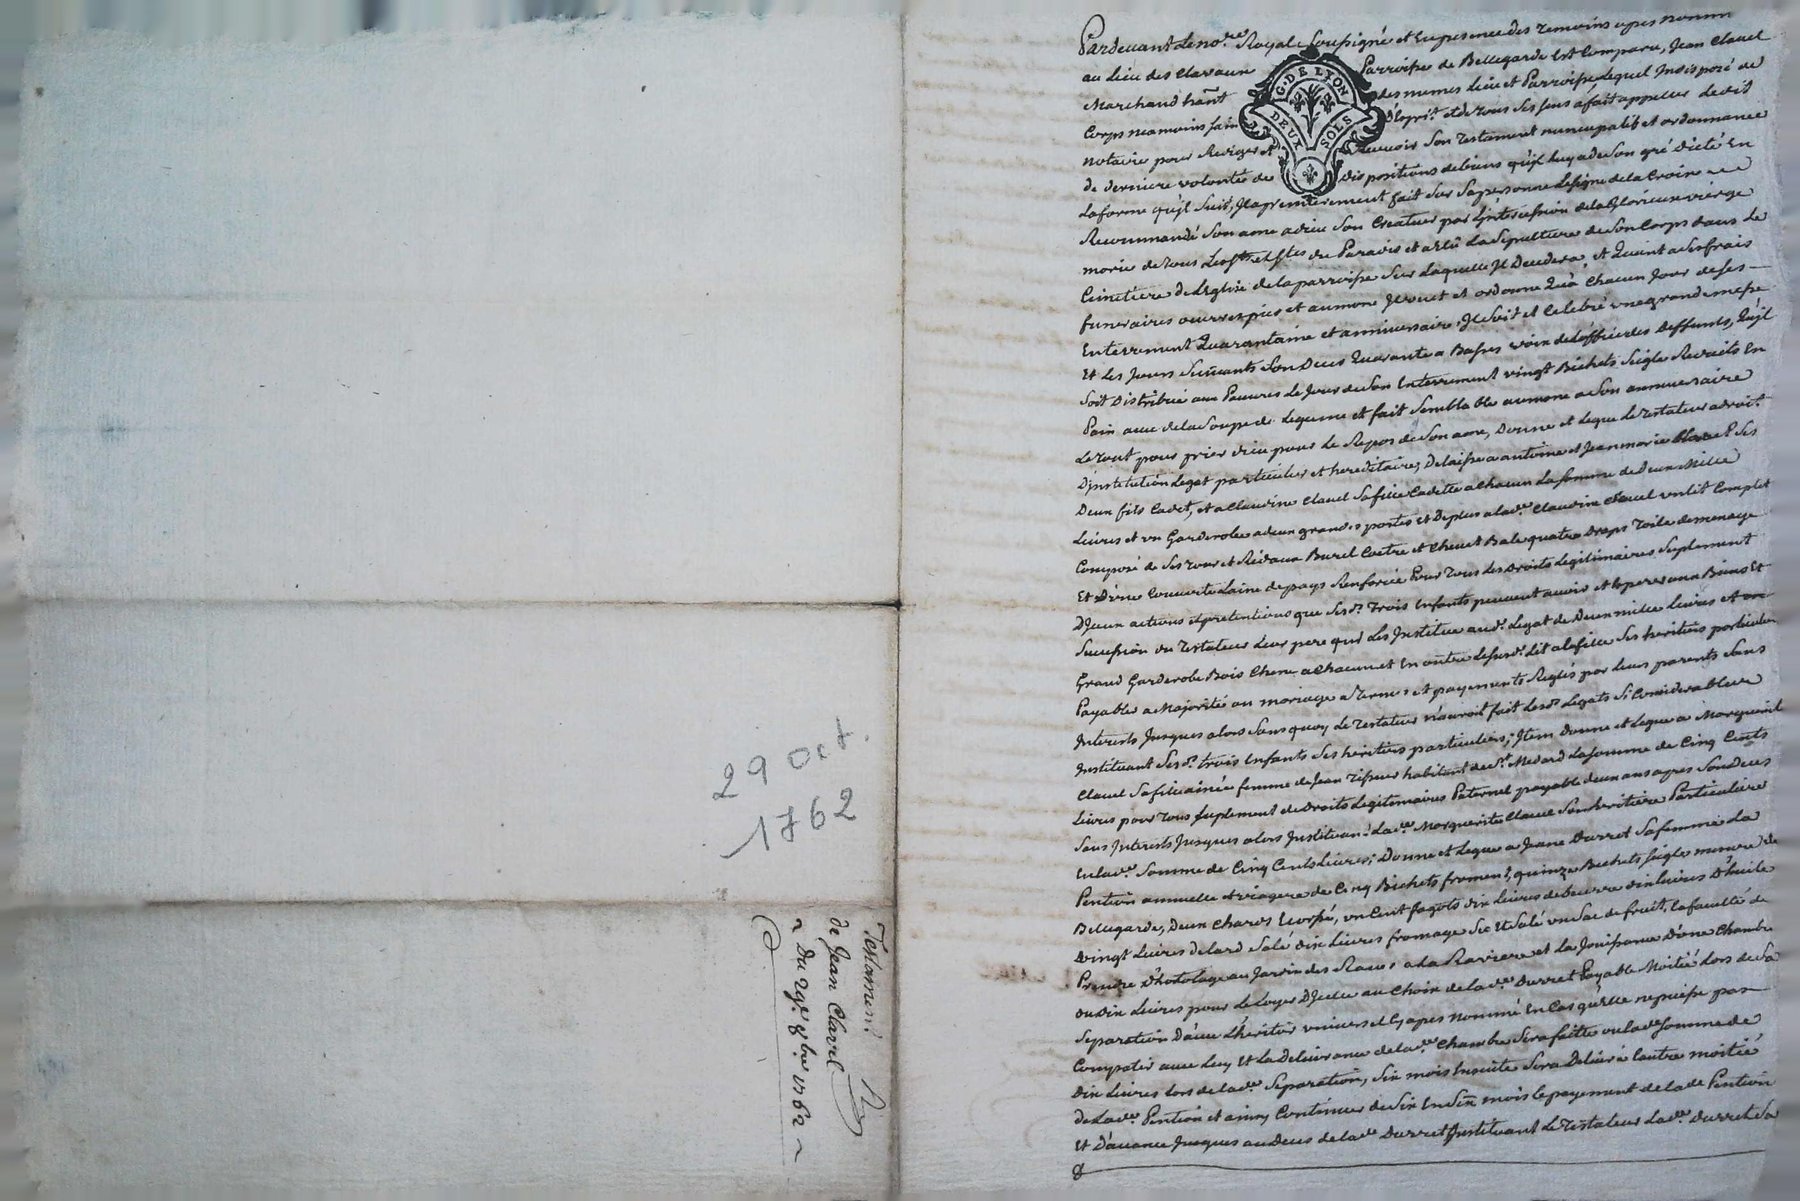 29 Oct.
1762
Testament
de Jean Clavel
Du 29e. 8bre 1762
G. DE LYON
DEUX SOLS
Pardevant le no.re Royal Soussigné et En presence des temoins apres nommé
au Lieu des Clavaux Parroisse de Bellegarde Est Comparu, Jean Clavel
Marchand h̃ant des memes Lieu et Parroisse, Lequel Indisposé de
Corps neamoins sain D'esprit et de tous ses sens a fait appeller ledit
notaire pour Rediger et Recevoir Son testament nuncupatif et ordonnance
de derniere volonté de dispositions de biens qu'il luy a de Son gré dicté En
la forme qu'il Suit, Il a premierement fait Sur Sa personne le Signe de la Croix
Recommandé Son ame a dieu Son Createur par L'intercession de la Glorieuse vierge
marie de tous Les Sts et Stes du Paradis et a elû La Sepulture de Son Corps dans Le
Cimetiere de L'Eglise de la parroisse Sur Laquelle Il Decedera, et Quant a Ses frais
funeraires oeuvres pies et aumone Il veut et ordonne Qu'à Chacun Jour de Ses
Enterrement Quarantaine et anniversaire, Il Soit dit et Celebré une grande messe
Et Les Jours Suivants Son Deces Quarante a Basses voix de L'office des Deffunts, Qu'il
Soit Distribué aux Pauvres Le Jour de Son Enterrement vingt Bichets Seigle Reduits En
Pain avec de la Soupe de Legume et fait Semblable aumone a Son anniversaire
Le tout pour prier dieu pour Le Repos de Son ame, Donne et Legue Le testateur a droit
D'institution Legat particulier et hereditaire, Delaisse a antoine et Jeanmarie Clavel Ses
Deux fils Cadet, et a Claudine Clavel Sa fille Cadette a Chacun La Somme de Deux Mille
Livres et un Garderobe a deux grandes portes et De plus a lad.e Claudine Clavel un lit Complet
Composé de Ses tour et Rideaux Burel Coetre et Chevet Bale quatre Draps toile de menage
Et D'une Couverte Laine de pays Renforcée Pour tous Les Droits Legitimaires Suplement
D'Iceux actions et pretentions que Ses d. trois Enfants peuvent avoir et Esperer aux Biens Et
Succession du testateur Leur pere qui Les Institue aud. Legat de Deux mille Livres et un
Grand Garderobe Bois Chene a Chacun et En outre Le Susd. Lit a la fille Ses heritiers particuliers
Payable a Majorité ou mariage a termes et payements Reglés par Leurs parents Sans
Interests Jusques alors Sans quoy Le testateur n'auroit fait Lesd. Legats Si Considerables
Instituant Sesd. trois Enfants Ses heritiers particuliers; Item Donne et Legue a Marguerite
Clavel Sa fille ainée femme de Jean Tisseur habitant de St. Medard La Somme de Cinq Cents
Livres pour tous Suplement de Droits Legitimaires Paternel payable deux ans apres Son Deces
Sans Interests Jusques alors Instituant Lad.e Marguerite Clavel Son heritiere Particuliere
En lad.e Somme de Cinq Cents Livres; Donne et Legue a Jeane Durret Sa femme La
Pention annuelle et viagere de Cinq Bichets froment, quinze Bichets Seigle mesure de
Bellegarde, Deux Chards un Cent fagots dix Livres de beurre dix Livres D'huile
Vingt Livres de Lard Salé dix Livres fromage Sec Et Salé un Sac de fruit, La faculté de
Prendre D'hortolage au Jardin des Raves a la Raviere et La Jouissance D'une Chambre
ou dix Livres pour Le Loyer D'Icelle au Choix de lad.e Durret Payable Moitié Lors de Sa
Separation D'avec L'heritier universel cy apres nommé En Cas qu'elle ne puisse pas
Compatir avec Luy Et La Delivrance de lad.e Chambre Sera faitte ou lad.e Somme de
Dix Livres Lors de lad.e Separation, Six mois Ensuite Sera Delivré L'autre moitié
De lad.e Pention et ainsy Continuer de Six En Six mois le payement de lad.e Pention
Et D'avance Jusques au Deces de lad.e Durret Instituant Le testateur Lad.e Durret Sa